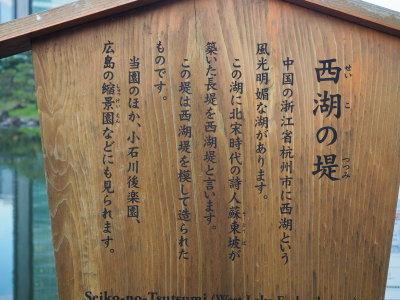 西湖の堤
せいこ つつみ
中国の浙江省杭州市に西湖という
風光明媚な湖があります。
この湖に北宋時代の詩人蘇東坡が
そとうば
築いた長堤を西湖堤と言います。
この堤は西湖堤を模して造られた
ものです。
当園のほか、小石川後楽園、
広島の縮景園などにも見られます。
しゅけいえん
Seiko-no-Tsutsumi (West Lake